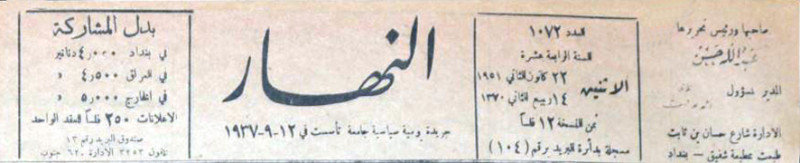 صاحبها ورئيس تحريرها
عبدالله حسن
المدير المسؤول
الادارة شارع حسان بن ثابت
طبعت بمطبعة شفيق - بغداد
العدد ١٠٧٢
للسنة الرابعة عشرة
الاثنين
٢٢ كانون الثاني ١٩٥١
١٤ ربيع الثاني ١٣٧٠
ثمن النسخة ١٢ فلساً
مسجلة بدائرة البريد برقم (١٠٤)
النهار
جريدة يومية سياسية جامعة تأسست في ١٢-٩-١٩٣٧
بدل المشاركة
في بغداد ٤,٠٠٠ دنانير
في العراق ٤,٥٠٠ »
في الخارج ٥,٠٠٠ »
الاعلانات ٢٥٠ فلساً للعقد الواحد
صندوق البريد رقم ١٣
تلفون ٣٢٥٣ الادارة ٦٢٠ جنوب